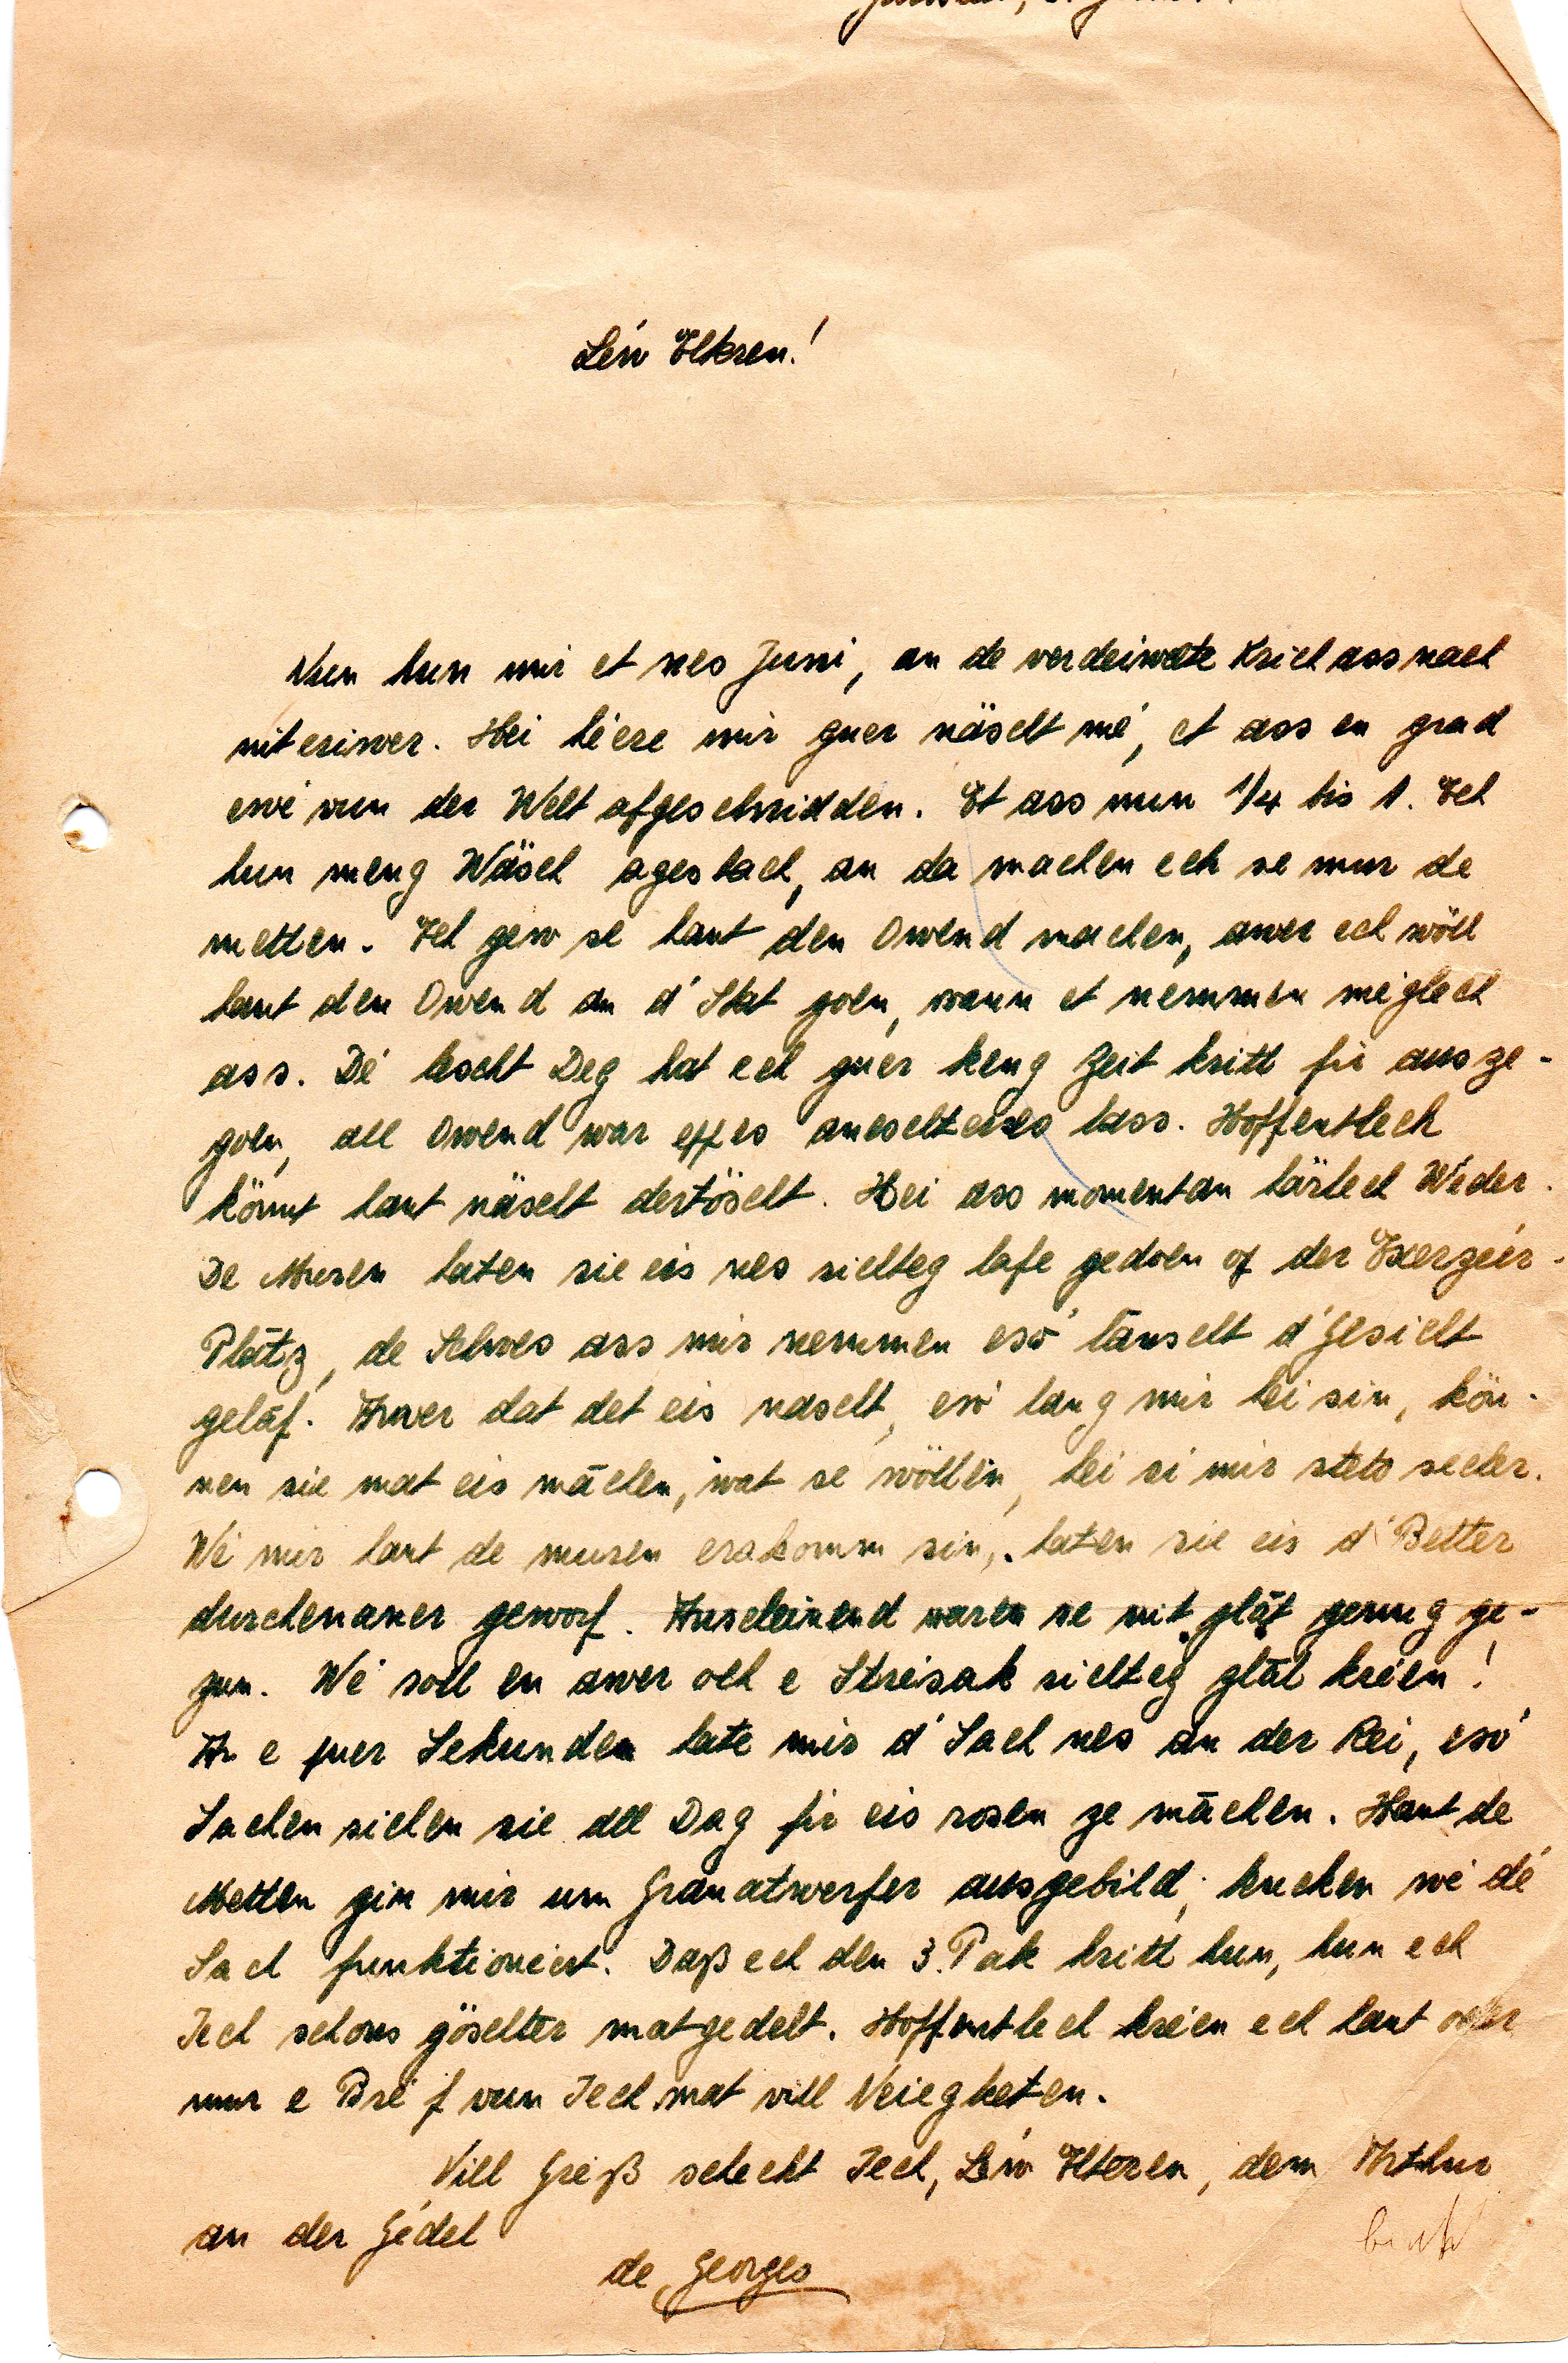 Léiw Elteren!
Nun hun mir et nes Juni, an de verdeiwelte Krich ass nach
nit eriwer. Hei héere mir guer näscht mé, et ass en grad
ewé vun der Welt afgeschnidden. Et ass nun 1/4 bis 1. Ech
hun meng Wäsch agestach, an da machen ech se mur de
metten. Ech gew se haut den Owend machen, awer ech wöll
haut den Owend an d'Stat goen, wann et nemmen méglech
ass. Dé lescht Deg hat ech guer keng Zeit kritt fir ausze-
goen, all Owend war eppes aneschteres lass. Hoffentlech
könnt haut näscht dertöscht. Hei ass momentan härlech Wieder.
De Muren haten sie eis nes richteg lafe gedoen of der Exerzéir-
Plätz, de Schwes ass mir nemmen esó iänscht d'Gesicht
gelaf. Awer dat det eis nascht, esó lang mir hei sin, kön-
nen sie mat eis mächen, wat se wöllen, hei si mir stets secher.
Wé mir haut de muren erakomm sin, haten sie eis d'Better
durchenaner geworf. Anscheinend waren se nit glät genug ge-
zun. Wé soll en awer och e Stréisak richteg glät kréien!
An e puer Sekunden hate mir d'Sach nes an der Rei, esó
Sachen sichen sie all Dag fir eis rosen ze mächen. Haut de
Metten gin mir um Granatwerfer ausgebild, kucken wé dé
Sach funktionéiert. Daß ech den 3. Pak kritt hun, hun ech
Iech schons göschter matgedelt. Hoffentlech kréien ech haut oder
mur e Bréif vun Iech mat vill Neiegketen.
Vill Gréiß schecht Iech, Léiw Elteren, dem Arthur
an der Gédel
de Georges